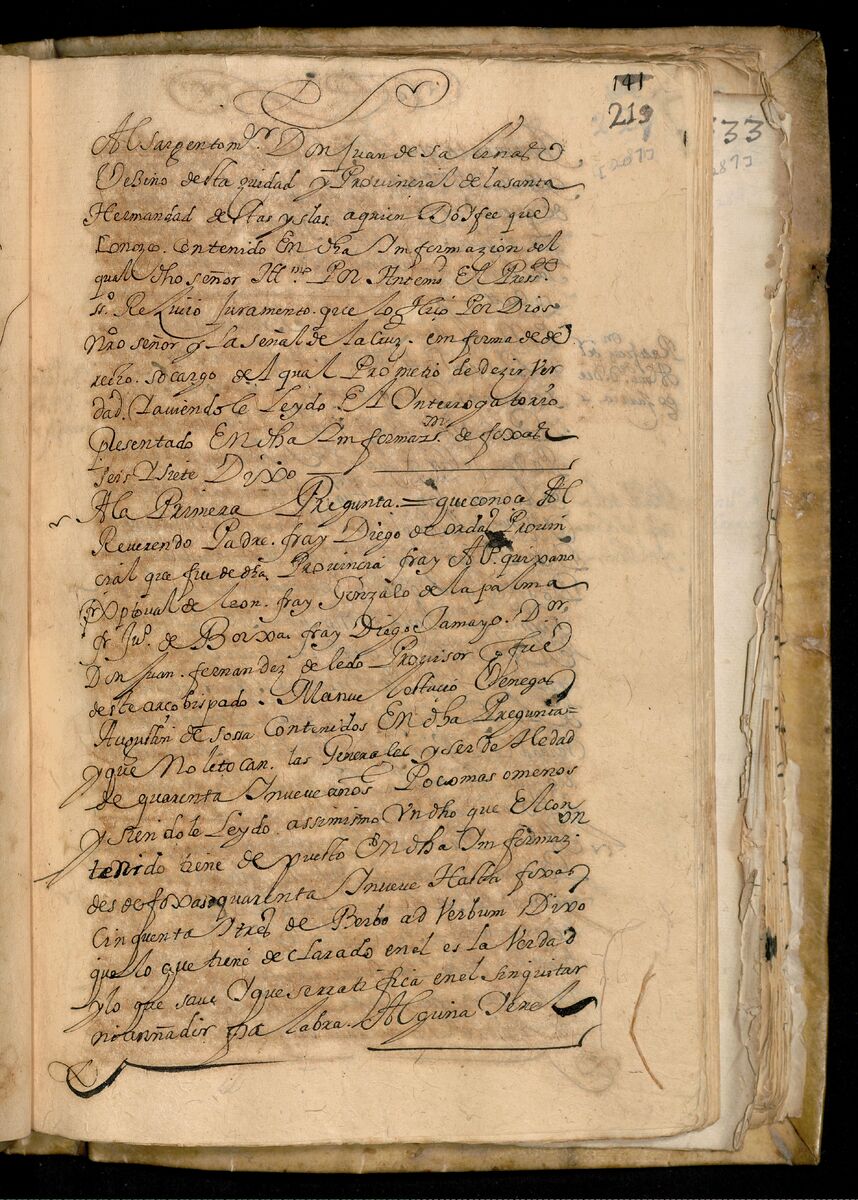 141
219
33
Al Sargento m.or Don Juan de Salinas
Vezino desta ziudad y Provincial de la Santa
Hermandad destas yslas a quien Doy fee que
Conozco. Contenido En dha Informazion del
qual dho señor Ill.mo Por Antemi El Press.te
ss.o Reziuio Juramento que lo Hizo Por Dios
Nro señor y La señal de la Cruz. en forma de de
recho. so cargo del qual Prometio de dezir Ver
dad. Y auiendole Leydo El Interrogatorio
Presentado En dha Informaz.on de foxas
seis Y siete Dixo
A la Primera Pregunta = que conoce Al
Reverendo Padre fray Diego de Ordas Provin
cial que fue de dha Provincia fray Al.o quixano
fr Xptoual de leon. fray Gonzalo de la palma
fr Ju.o de Borxa. fray Diego Tamayo. D.or
Don Juan fernandez de ledo Provisor q fue
deste arcobispado. Manuel Venegas
Augustin de sossa Contenidos En dha Pregunta =
y que No le tocan. las Generales y ser de Hedad
de quarenta Y nueve anos Poco mas o menos
y siendole Leydo assimismo Vn dho que El con
tenido tiene de puesto En dha Informaz.on
desde foxas quarenta Y nueve Hasta foxas
Cinquenta Y tres de Berbo ad Verbum Dixo
que lo que tiene declarado en el es la Verdad
y lo que saue Y que se rratifica en el sin quitar
ni añadir pa labra Alguna Y en el